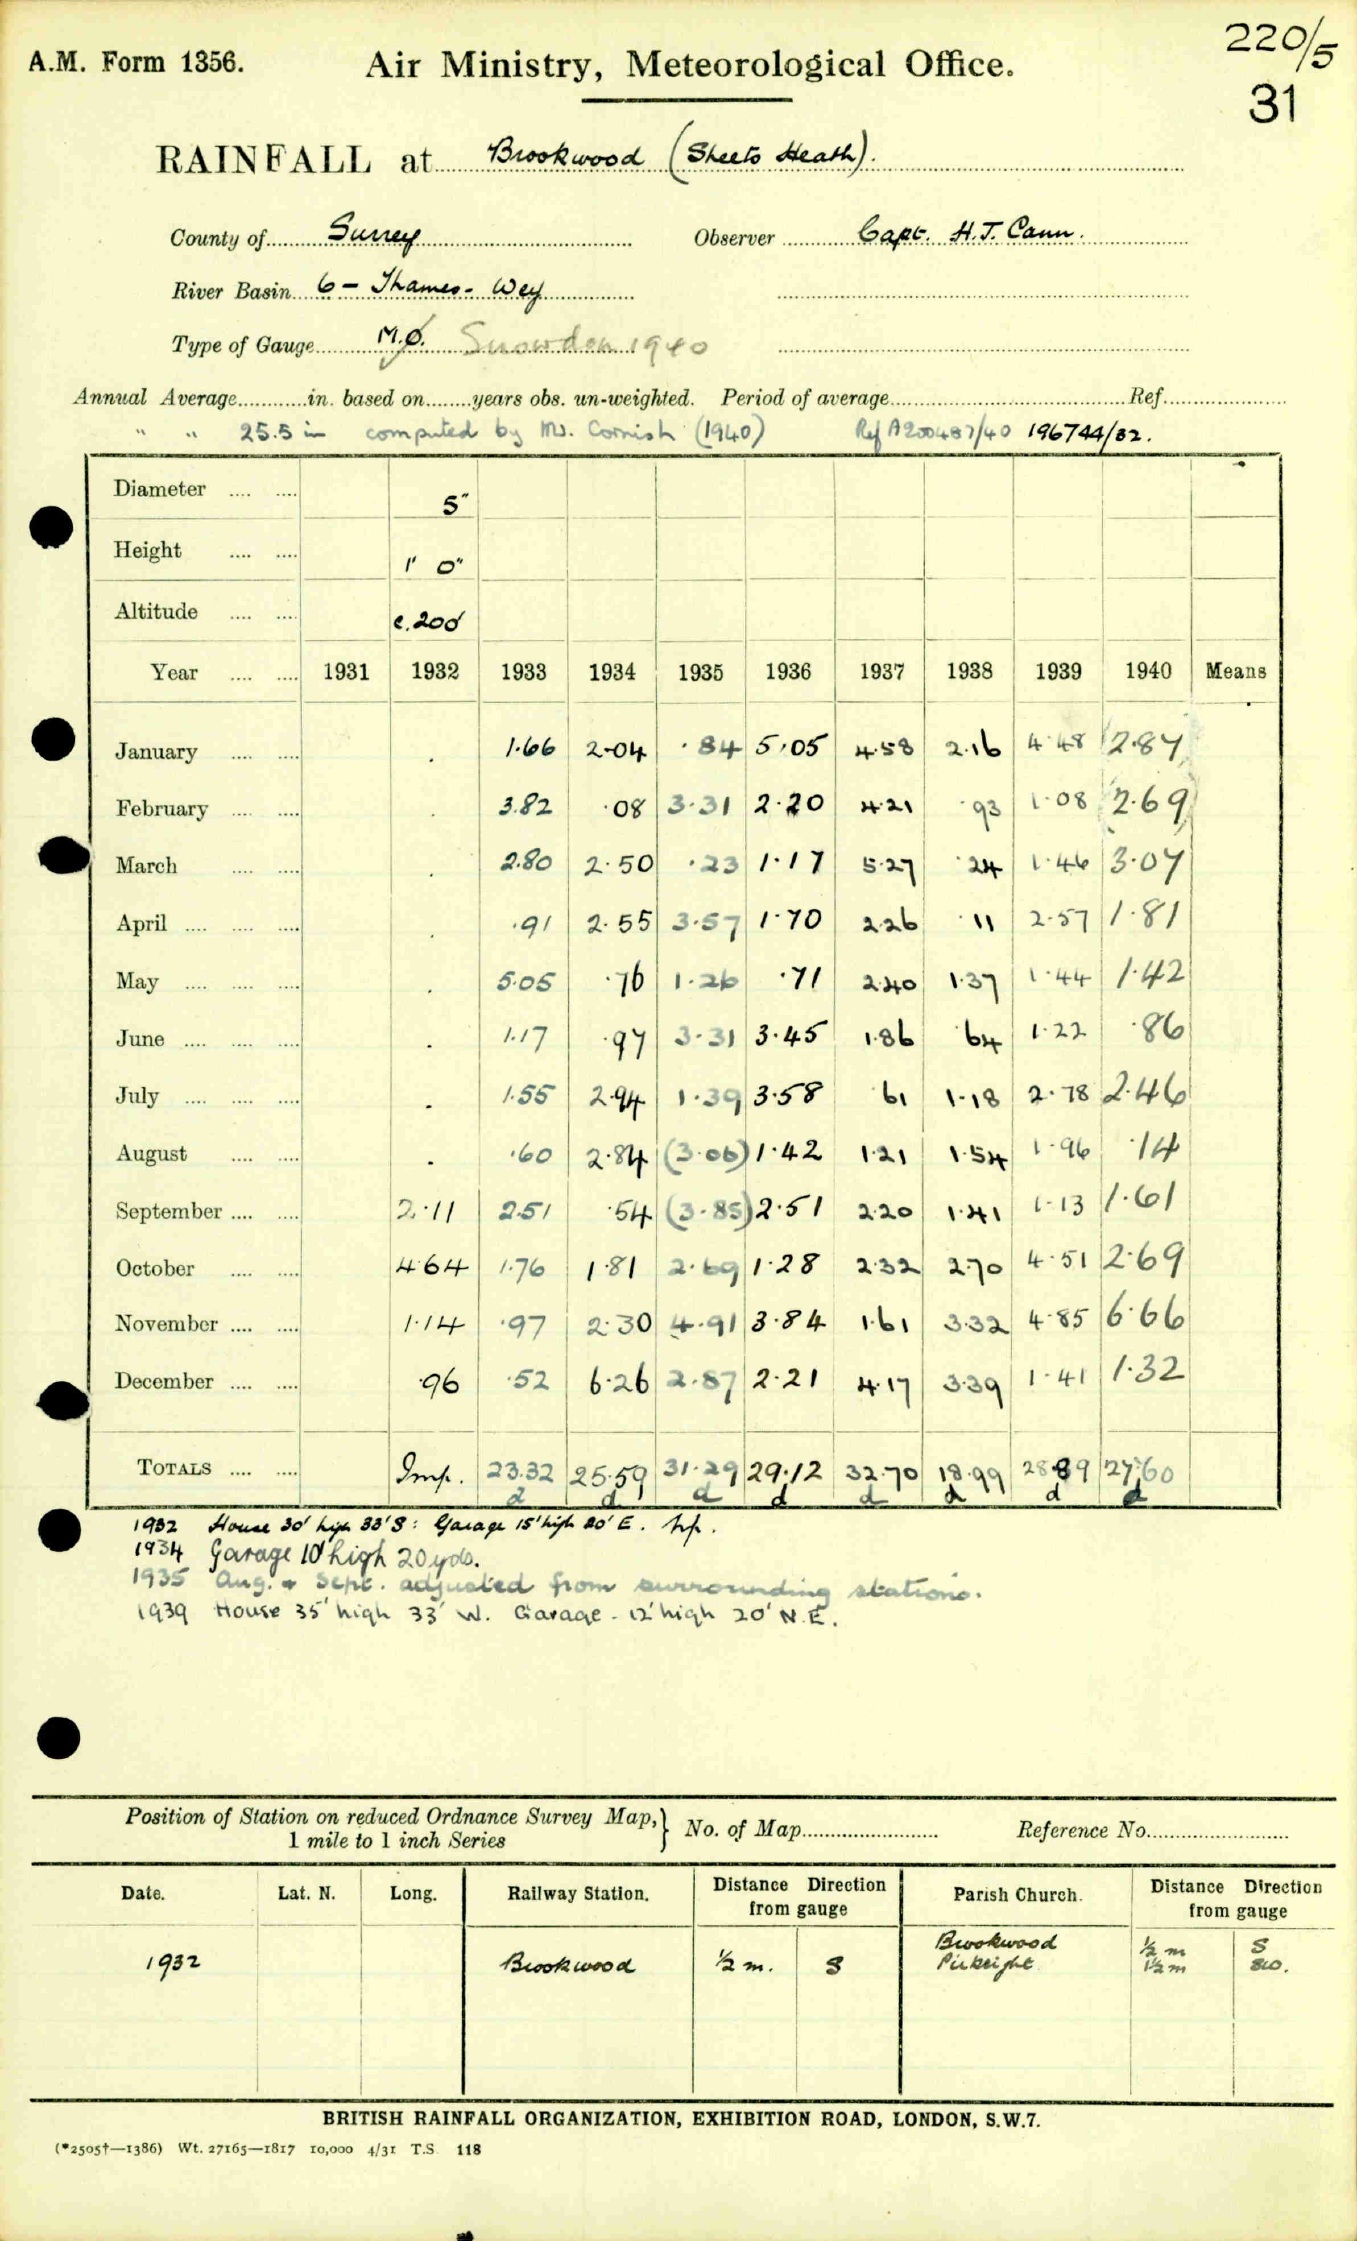 220/5
A.M. Form 1356. Air Ministry, Meteorological Office.
31
RAINFALL at Brookwood (Sheets Heath).
County of Surrey Observer Capt. H.J. Cann.
River Basin 6 - Thames - Wey
Type of Gauge M.O. Snowdon 1940
Annual Average in. based on years obs. un-weighted. Period of average Ref.
" " 25.5 in computed by Mr. Cornish (1940) Ref A200487/40 196744/32.
Diameter 5"
Height 1' 0"
Altitude c.200
Year 1931 1932 1933 1934 1935 1936 1937 1938 1939 1940 Means
January . 1.66 2.04 .84 5.05 4.58 2.16 4.48 (2.87)
February . 3.82 .08 3.31 2.20 4.21 .93 1.08 (2.69)
March . 2.80 2.50 .23 1.17 5.27 .24 1.46 3.07
April . .91 2.55 3.57 1.70 2.26 .11 2.57 1.81
May . 5.05 .76 1.26 .71 2.40 1.37 1.44 1.42
June . 1.17 .97 3.31 3.45 1.86 .64 1.22 .86
July . 1.55 2.94 1.39 3.58 .61 1.18 2.78 2.46
August . .60 2.84 (3.06) 1.42 1.21 1.54 1.96 .14
September 2.11 2.51 .54 (3.85) 2.51 2.20 1.41 1.13 1.61
October 4.64 1.76 1.81 2.69 1.28 2.32 2.70 4.51 2.69
November 1.14 .97 2.30 4.91 3.84 1.61 3.32 4.85 6.66
December .96 .52 6.26 2.87 2.21 4.17 3.39 1.41 1.32
TOTALS Imp. 23.32 25.59 31.29 29.12 32.70 18.99 28.89 27.60
d d d d d d d d
1932 House 30' high 33' S: Garage 15' high 20' E.
1934 Garage 10' high 20 yds.
1935 Aug. & Sept. adjusted from surrounding stations.
1939 House 35' high 33' W. Garage - 12' high 20' N.E.
Position of Station on reduced Ordnance Survey Map, } No. of Map Reference No.
1 mile to 1 inch Series
Date. Lat. N. Long. Railway Station. Distance Direction from gauge Parish Church. Distance Direction from gauge
1932 Brookwood ½ m. S Brookwood ½ m S
Pirbright 1½ m SW.
BRITISH RAINFALL ORGANIZATION, EXHIBITION ROAD, LONDON, S.W.7.
(*2505†—1386) Wt. 27165—1817 10,000 4/31 T.S. 118